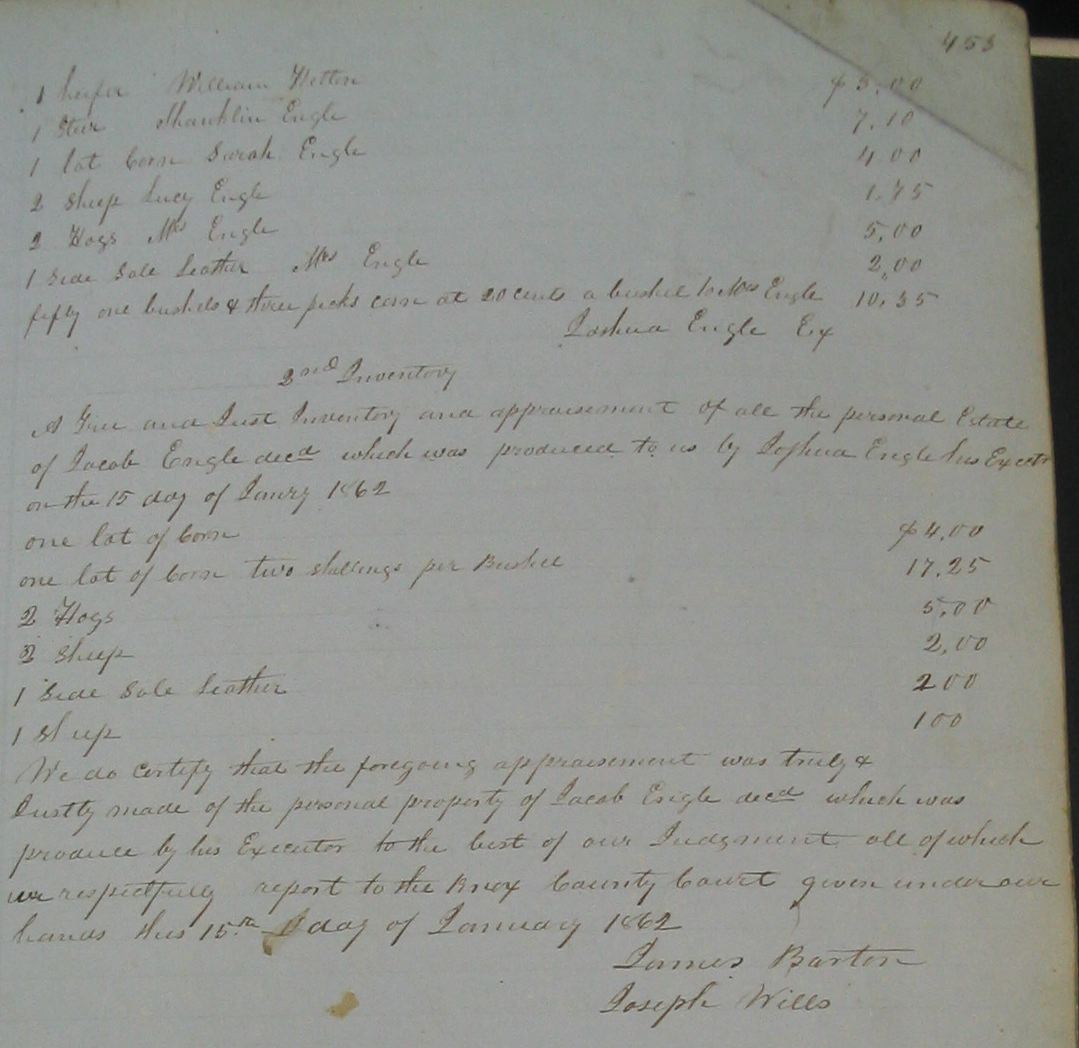 453
1 heifer William Hetton $3.00
1 Steer Shanklin Engle 7.10
1 lot Corn Sarah Engle 4.00
2 Sheep Lucy Engle 1.75
2 Hogs Mrs Engle 5.00
1 Side Sole Leather Mrs Engle 2,00
fifty one bushels & three pecks corn at 20 cents a bushel to Mrs Engle 10,35
Joshua Engle Ex
2nd Inventory
A True and Just Inventory and appraisement of all the personal Estate
of Jacob Engle decd which was produced to us by Joshua Engle his Exectr
on the 15 day of Janry 1862
one lot of Corn $4,00
one lot of Corn two shillings per Bushel 17.25
2 Hogs 5,00
2 Sheep 2,00
1 Side Sole Leather 200
1 Sheep 100
We do certify that the foregoing appraisement was truly &
Justly made of the personal property of Jacob Engle decd which was
produce by his Executor to the best of our Judgment all of which
we respectfully report to the Knox County Court given under our
hands this 15th day of January 1862
James Barton
Joseph Wills